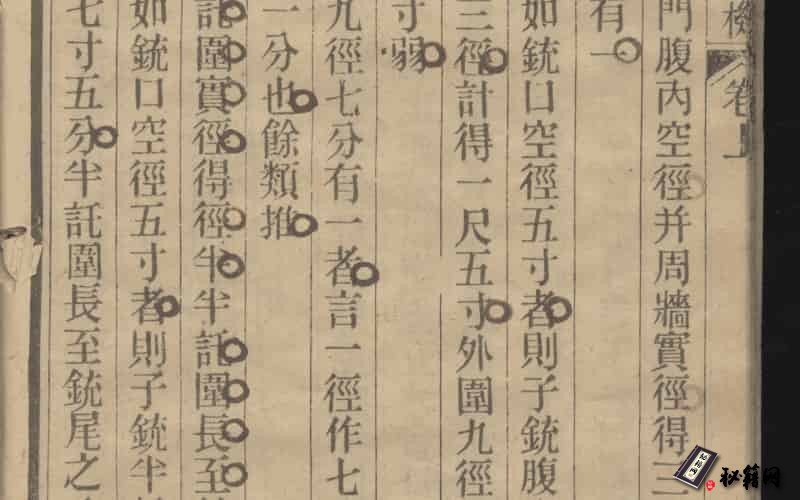 卷上
門腹內空徑并周牆實徑得三
有一
如銃口空徑五寸者則子銃腹
三徑計得一尺五寸外圍九徑
寸弱
九徑七分有一者言一徑作七
一分也餘類推
託圍實徑得徑半半託圍長至
如銃口空徑五寸者則子銃半
七寸五分半託圍長至銃尾之
秘籍网